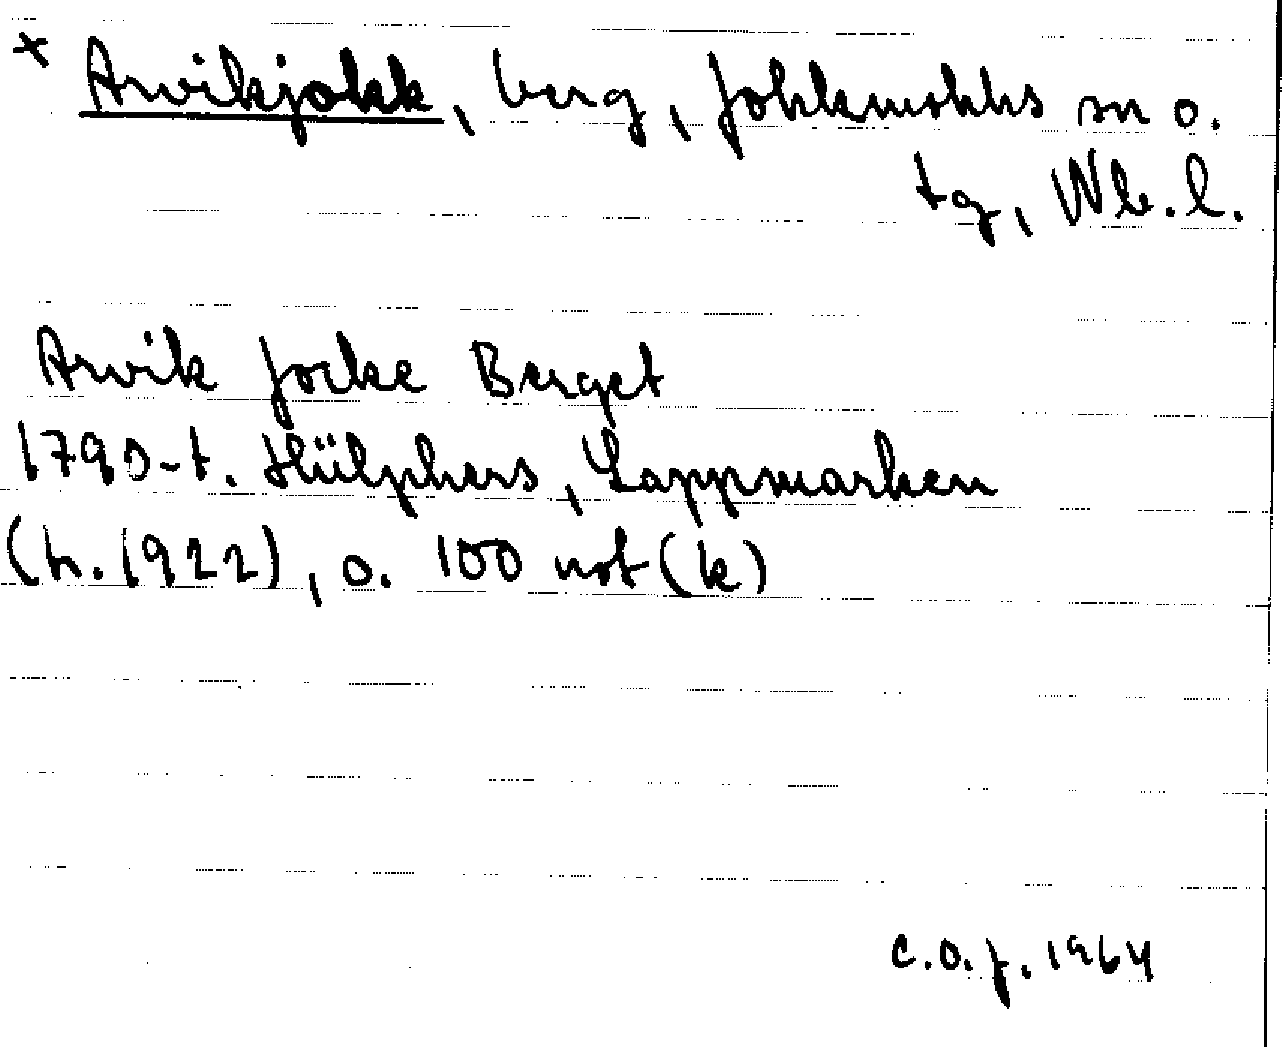 * Arwikjokk, berg, Jokkmokks sn o.
tg, Nb. l.
Arwik Jocke Berget
1790-t. Hülphers, Lappmarken
(h. 1922), o. 100 not (k)
C.O.J. 1964